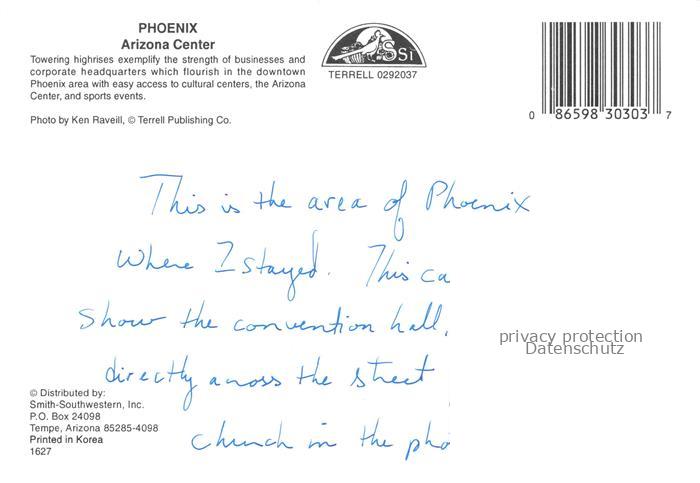 PHOENIX
Arizona Center
Towering highrises exemplify the strength of businesses and
corporate headquarters which flourish in the downtown
Phoenix area with easy access to cultural centers, the Arizona
Center, and sports events.
Photo by Ken Raveill, © Terrell Publishing Co.
SSi
TERRELL 0292037
0 86598 30303 7
This is the area of Phoenix
Where I stayed. This ca
Show the convention hall,
directly across the street
church in the pho
privacy protection
Datenschutz
© Distributed by:
Smith-Southwestern, Inc.
P.O. Box 24098
Tempe, Arizona 85285-4098
Printed in Korea
1627